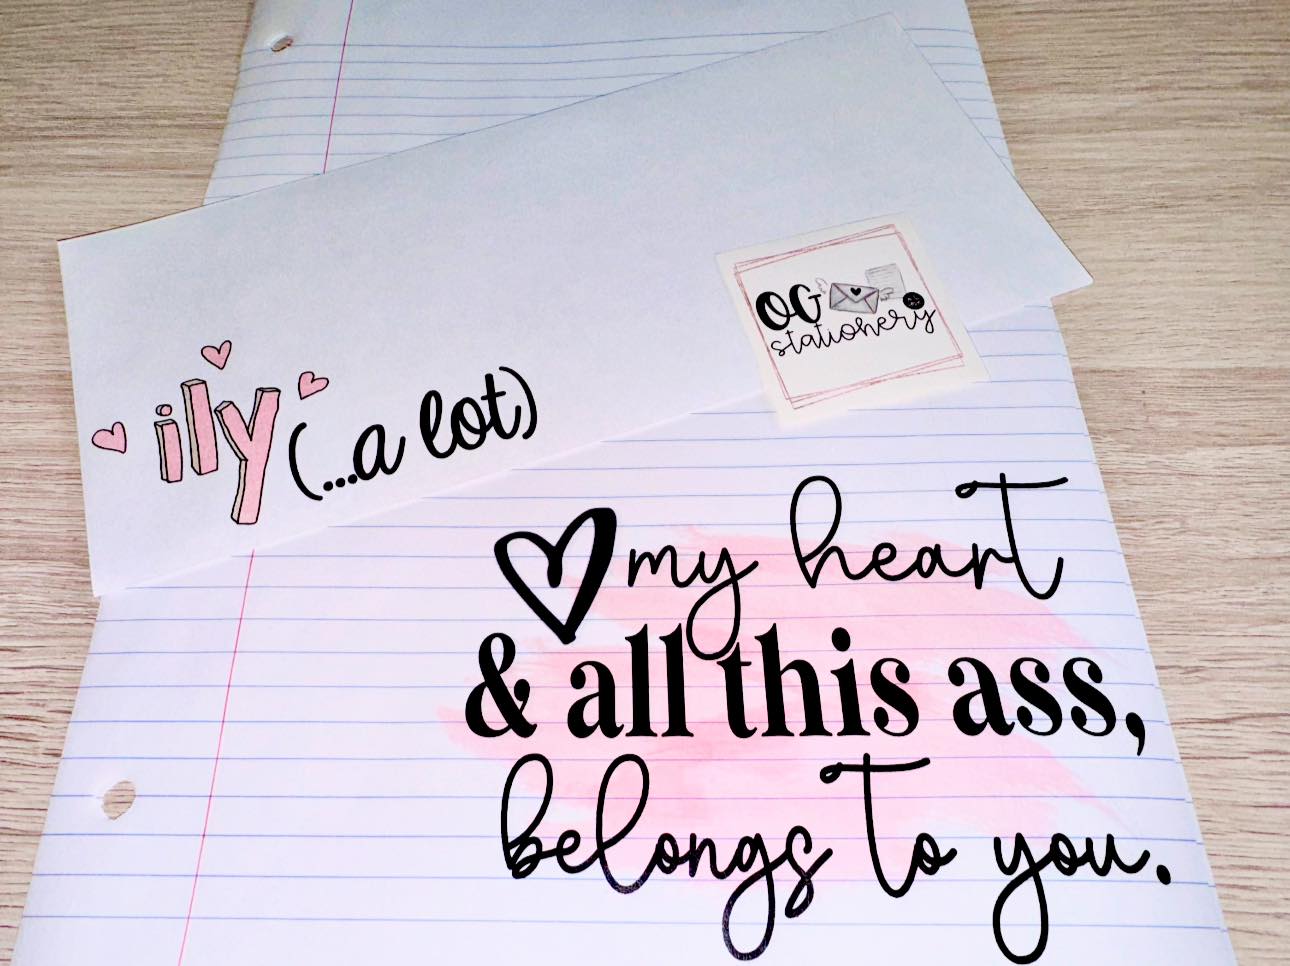 OG
stationery
ily (...a lot)
my heart
& all this ass,
belongs to you.